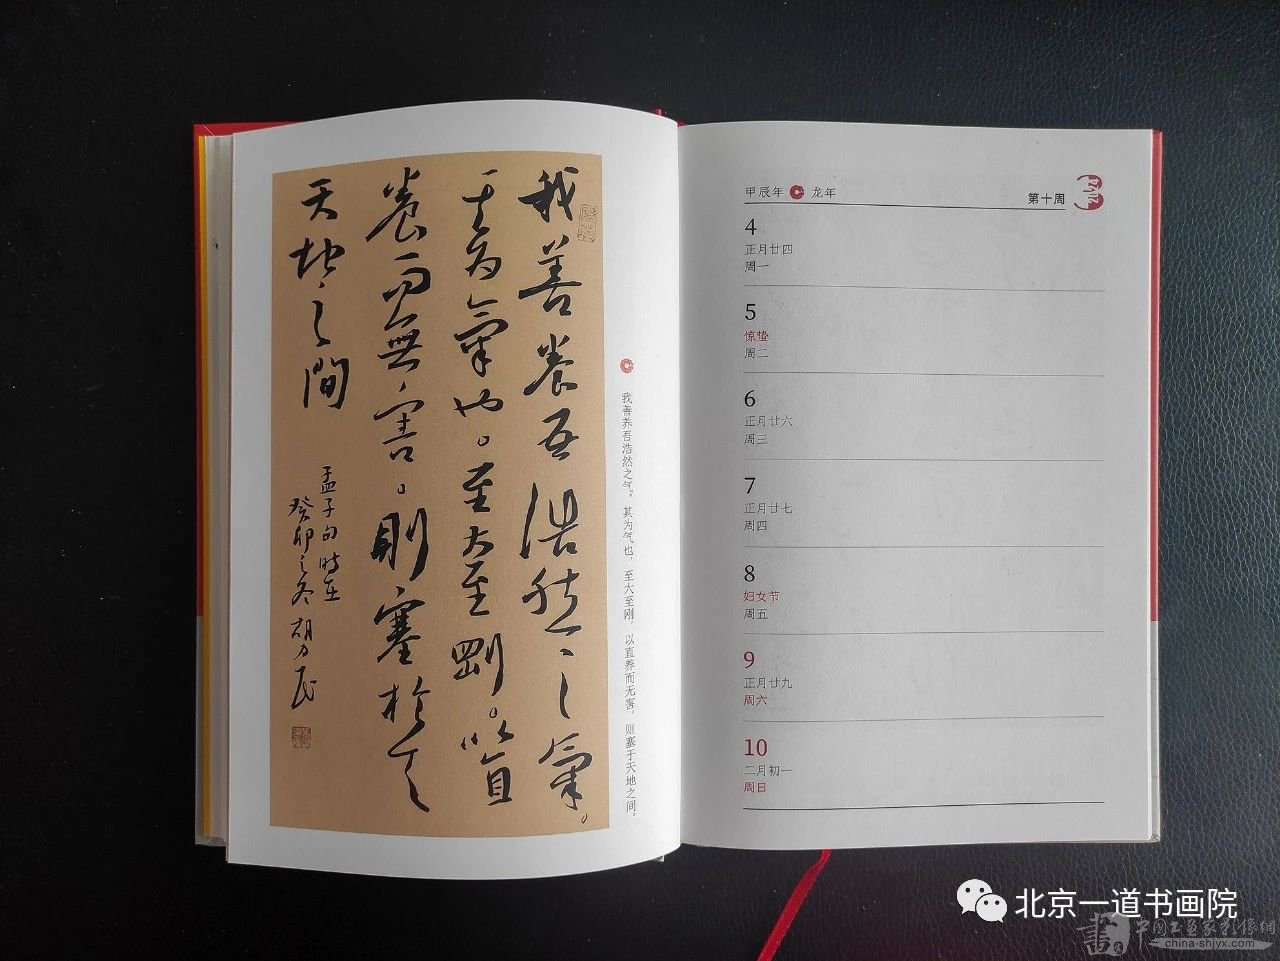 我善養吾浩然之氣。
其為氣也。至大至剛。以直
養而無害。則塞於
天地之間
孟子句時在
癸卯之冬胡力民
我善养吾浩然之气。其为气也，至大至刚，以直养而无害，则塞于天地之间。
甲辰年 龙年
第十周
4
正月廿四
周一
5
惊蛰
周二
6
正月廿六
周三
7
正月廿七
周四
8
妇女节
周五
9
正月廿九
周六
10
二月初一
周日
北京一道书画院
畫
中国书画家影像網
china-shjyx.com